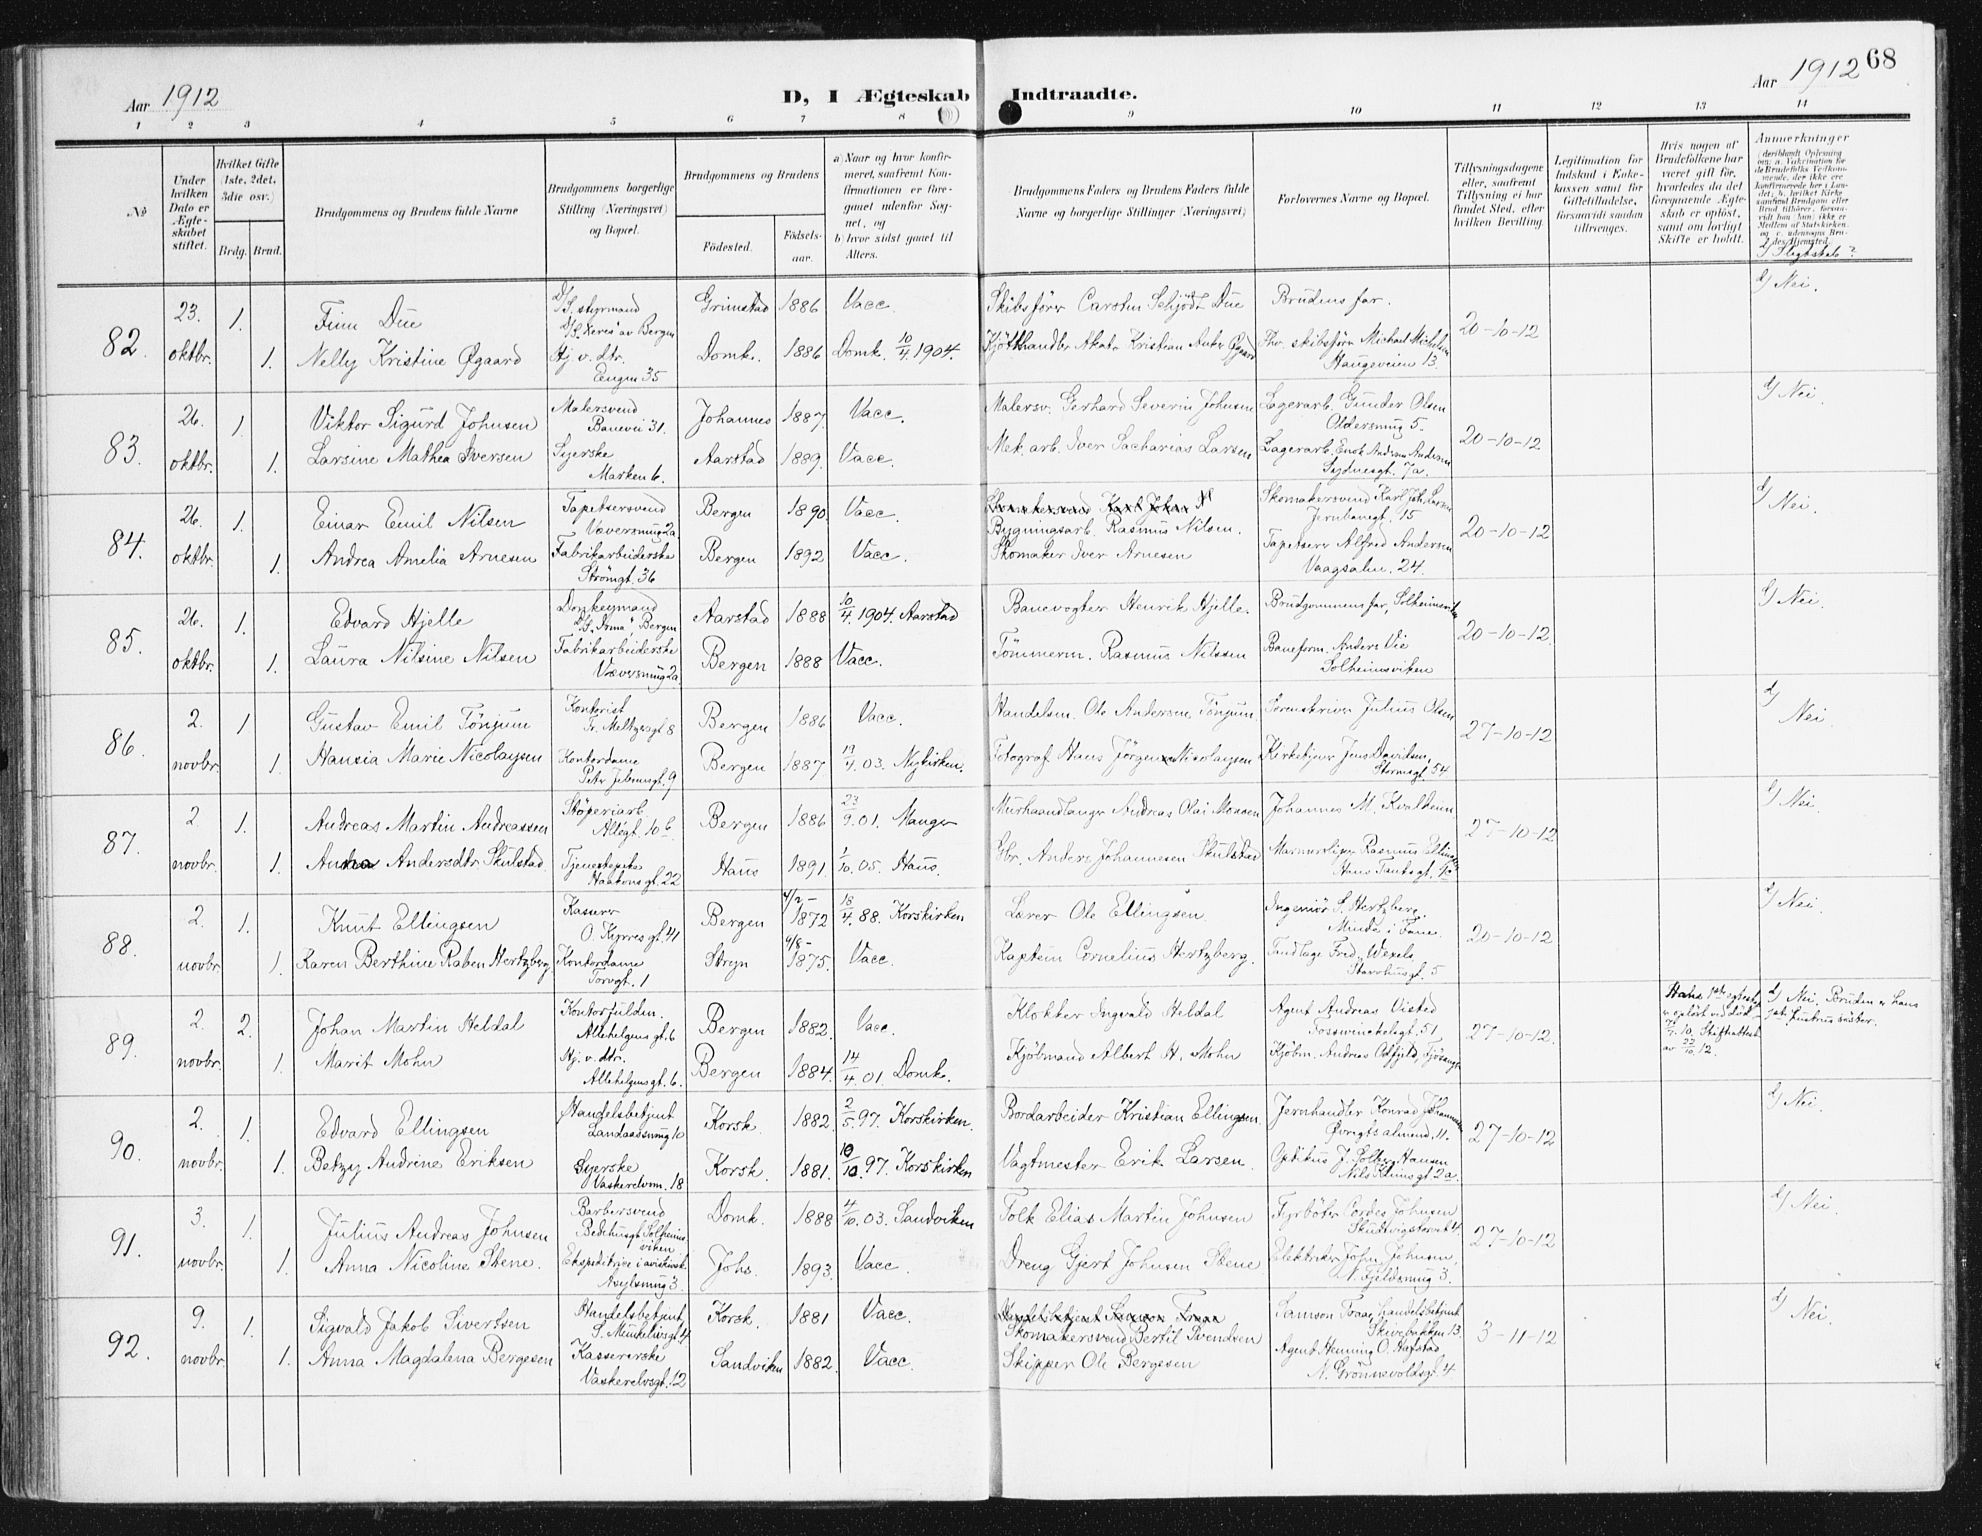 Aar 1912
D, I Ægteskab Indtraadte.
Aar 1912 68
1 2 3 4 5 6 7 8 9 10 11 12 13 14
No
Under hvilken Dato er Ægteskabet stiftet.
Hvilket Gifte (1ste, 2det, 3die osv.)
Brdg. Brud.
Brudgommens og Brudens fulde Navne
Brudgommens borgerlige Stilling (Næringsvei) og Bopæl.
Brudgommens og Brudens
Fødested. Fødsels-aar.
a) Naar og hvor konfirmeret, saafremt Konfirmationen er foregaaet udenfor Sognet, og
b) hvor sidst gaaet til Alters.
Brudgommens Faders og Brudens Faders fulde Navne og borgerlige Stillinger (Næringsvei)
Forlovernes Navne og Bopæl.
Tillysningsdagene eller, saafremt Tillysning ei har fundet Sted, efter hvilken Bevilling.
Legitimation for Indskud i Enkekassen samt for Giftetilladelse, forsaavidt saadan tiltrænges.
Hvis nogen af Brudefolkene har været gift før, hvorledes da det foregaaende Ægteskab er opløst, samt om lovligt Skifte er holdt.
Anmerkninger
d/ Slegtskab?
82. 23. oktbr. 1. Finn Due D/S. styrmand D/S "Xeres" av Bergen Grimstad 1886 Vacc. Skibsfører Carsten Schjödt Due Brudens far. 20-10-12 d/ Nei.
1. Nelly Kristine Øgaard Hj. v. dtr. Engen 35 Domk. 1886 Domk. 10/4. 1904. Kjötthandler Kristian Anker Øgaard Fhv. skibsfører Michael Michelsen Haugeveien 13.
83. 26. oktbr. 1. Viktor Sigurd Johnsen Malersvend Banevei 31. Johannes 1887. Vacc. Malersv. Gerhard Severin Johnsen Lagerarb. Gunder Olsen Oldersmug 5. 20-10-12 d/ Nei.
1. Larsine Mathea Iversen Syerske Marken 6. Aarstad 1889. Vacc. Mek. arb. Iver Sacharias Larsen Lagerarb. Enok Andreas Andersen Sydnesgt. 7a.
84. 26. oktbr. 1. Einar Emil Nilsen Tapetsersvend Væversmug 2a Bergen 1890. Vacc. Bygningsarb. Rasmus Nilsen. Skomakersvend Karl Joh. Larsen Jernbanegt. 15 20-10-12 d/ Nei.
1. Andrea Amelia Arnesen Fabrikarbeiderske Strömgt. 36 Bergen 1892 Vacc. Skomaker Iver Arnesen Tapetserer Alfred Andersen Vaagsalm. 24.
85. 26. oktbr. 1. Edvard Hjelle Donkeymand D/S. "Anna" Bergen Aarstad 1888 10/4. 1904. Aarstad Banevogter Henrik Hjelle. Brudgommens far, Solheimsviken 20-10-12. d/ Nei.
1. Laura Nilsine Nilsen Fabrikarbeiderske Væversmug 2a. Bergen 1888 Vacc. Tömmerm. Rasmus Nilssen Baneform. Anders Vie Solheimsviken
86. 2. novbr. 1 Gustav Emil Tönjum Kontorist Fr. Meltzersgt 8 Bergen 1886 Vacc. Handelsm. Ole Andersen Tönjum. Sorenskriver Julius Olsen 27-10-12 d/ Nei.
1. Hansia Marie Nicolaysen Kontordame Petr Jebsensgt. 9 Bergen 1887 19/4. 03. Nykirken. Fotograf Hans Jörgen Nicolaysen Kirketjener Jens Davidsen, Stormsgt. 54
87. 2. novbr. 1. Andreas Martin Andreassen Stöperiarb. Allégt. 10 b Bergen 1886 23/9. 01. Manger Murhaandlanger Andreas Olai Monsen Johannes M. Kvalheim 27-10-12 d/ Nei.
1. Anna Andersdtr. Skulstad Tjenestepike Haakonsgt. 22 Haus 1891. 1/10. 05. Haus. Gbr. Anders Johannesen Skulstad Marmorsliper Rasmus Ellingsen Hans Tanksgt.
88. 2. novbr. 1. Knut Ellingsen Kasserer O. Kyrresgt. 41 Bergen 4/2-1872 18/4. 88. Korskirken Lærer Ole Ellingsen. Ingeniör S. Hertzberg. Minde i Fane. 20-10-12. d/ Nei.
1. Karen Berthine Raben Hertzberg Kontordame Torvgt. 1 Stryn 4/8-1875. Vacc. Kaptein Cornelius Hertzberg. Tandlæge Fred. Wexels Starvhusgt. 5
89. 2. novbr. 2. Johan Martin Heldal Kontorfuldm. Allehelgensgt. 6 Bergen 1882. Vacc. Klokker Ingvald Heldal Agent Andreas Visted Fosswinckelsgt. 51 27-10-12. Hans 1ste egteskap er oplöst ved död 10. Skifteattest av 23/10. 12. d/ Nei. Bruden er hans 1ste hustrus söster.
1. Marit Mohn Hj. v. dtr. Allehelgensgt. 6. Bergen 1884. 14/4. 01. Domk. Kjöbmand Albert H. Mohn Kjöbm. Andreas Odfjeld,
90. 2. novbr. 1. Edvard Ellingsen Handelsbetjent Landaassmug 10 Korsk. 1882. 2/5. 97. Korskirken. Bordarbeider Kristian Ellingsen. Jernhandler Konrad Johannesen Øvregts almend. 11. 27-10-12 d/ Nei.
1. Betzy Andrine Eriksen Syerske Vaskerelvsm. 18 Korsk. 1881. 10/10. 97. Korskirken Vagtmester Erik Larsen. Optikus J. Solberg Hansen Nils Klimsgt 2a.
91. 3. novbr. 1. Julius Andreas Johnsen Barbersvend Bedehusgt Solheimsviken Domk. 1888 4/10. 03. Sandviken Tolk Elias Martin Johnsen Fyrböter Cordes Johnsen Skudevigstorvet 4. 27-10-12 d/ Nei.
1. Anna Nicoline Stene. Ekspeditrice i aviskiosk. Asylsmug 3. Johs. 1893. Vacc. Dreng Gjert Johnsen Stene Elektriker John Johnsen, N. Fjeldsmug 3.
92. 9. novbr. 1. Sigvald Jakob Sivertsen Handelsbetjent, S. Munkelvsgt. 4 Korsk. 1881 Vacc. Handelsbetjent Samson Traaa Skomakersvend Bertil Svendsen Samson Traaa, handelsbetjent Skivebakken 13. 3-11-12 d/ Nei.
1. Anna Magdalena Bergesen Kassererske Vaskerelvsgt. 12 Sandviken 1882. Vacc. Skipper Ole Bergesen Agent Henning O. Hafstad, N. Grönnevoldsgt. 4